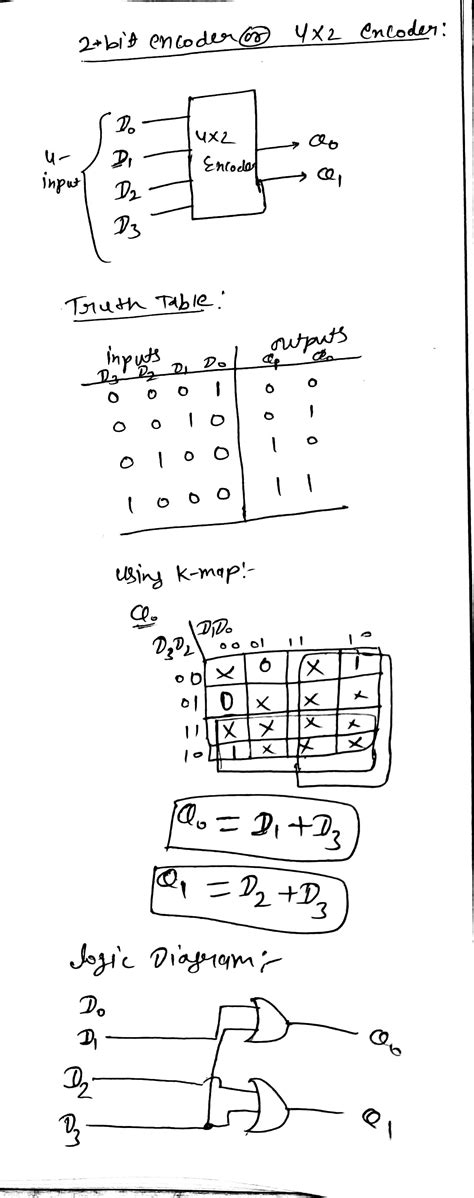 2-bit encoder or 4x2 Encoder:
4-input
D0
D1
D2
D3
4x2 Encoder
Q0
Q1
Truth Table:
inputs outputs
D3 D2 D1 D0 Q1 Q0
0 0 0 1 0 0
0 0 1 0 0 1
0 1 0 0 1 0
1 0 0 0 1 1
using K-map:-
Q0
D3D2 D1D0
00 01 11 10
00 X 0 X 1
01 0 X X X
11 X X X X
10 1 X X X
Q0 = D1 + D3
Q1 = D2 + D3
logic Diagram:-
D0
D1
Q0
D2
D3
Q1